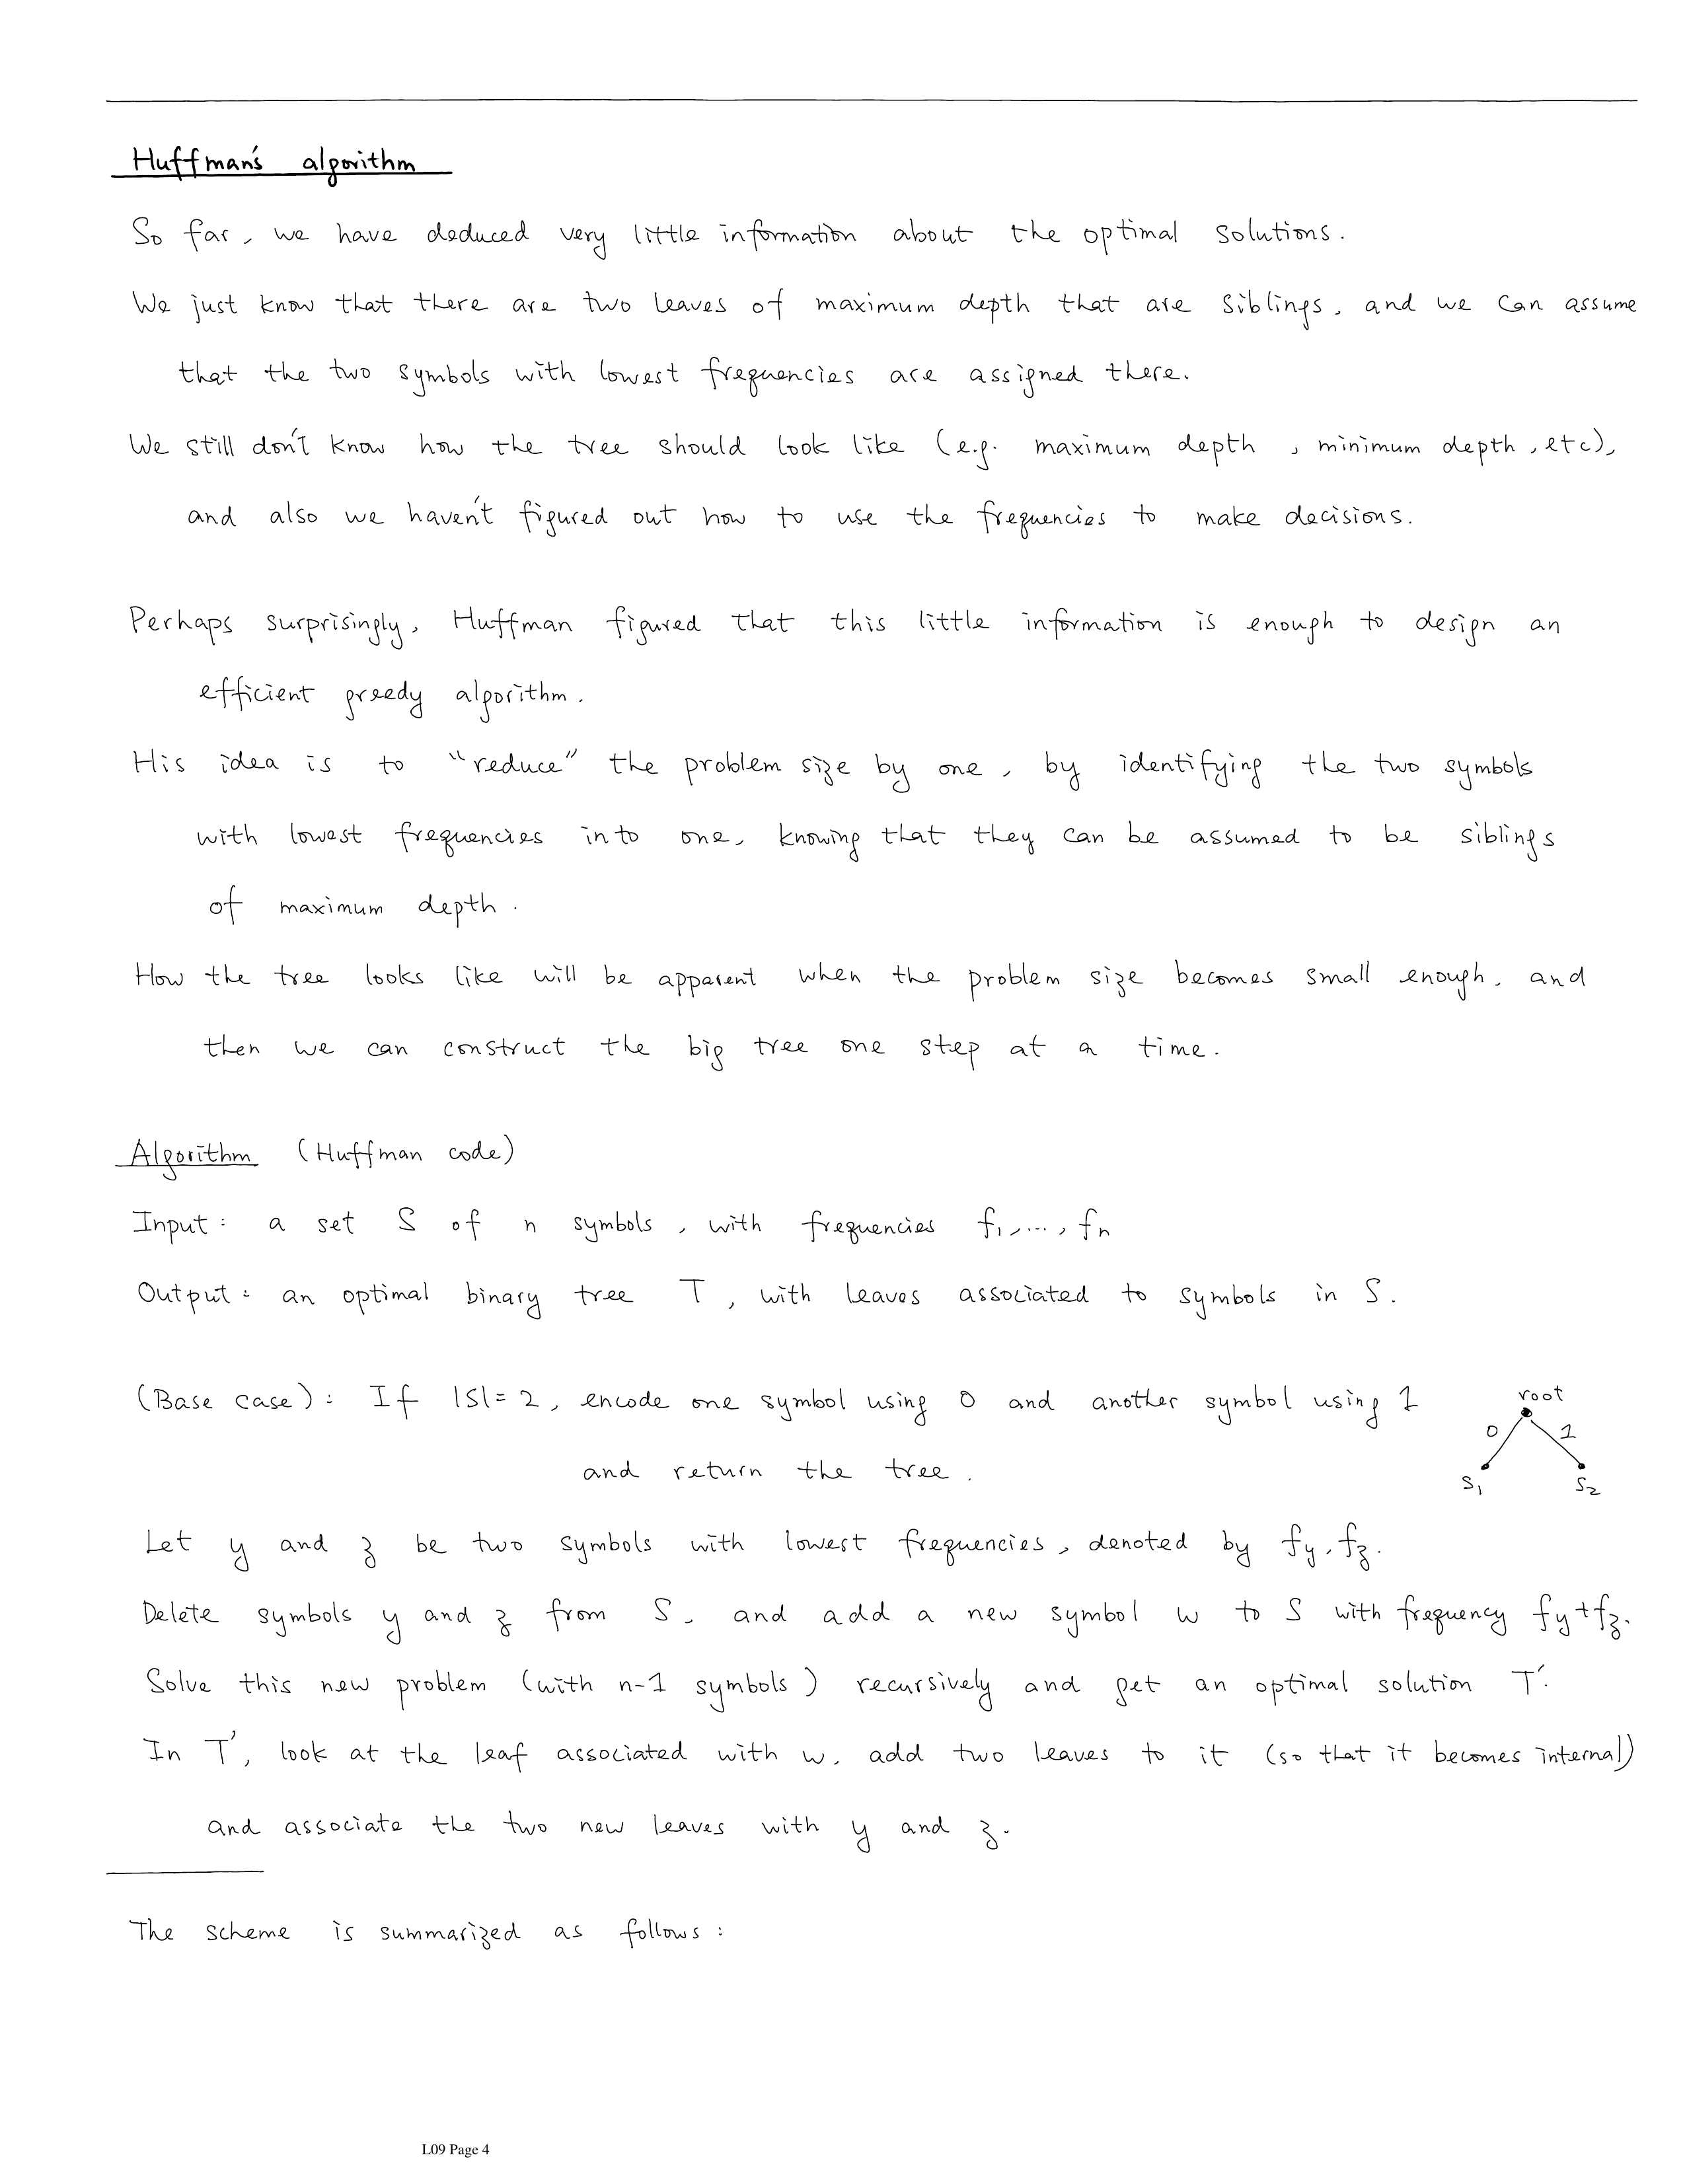 Huffman's algorithm
So far, we have deduced very little information about the optimal solutions.
We just know that there are two leaves of maximum depth that are siblings, and we can assume
that the two symbols with lowest frequencies are assigned there.
We still don't know how the tree should look like (e.g. maximum depth, minimum depth, etc),
and also we haven't figured out how to use the frequencies to make decisions.
Perhaps surprisingly, Huffman figured that this little information is enough to design an
efficient greedy algorithm.
His idea is to "reduce" the problem size by one, by identifying the two symbols
with lowest frequencies into one, knowing that they can be assumed to be siblings
of maximum depth.
How the tree looks like will be apparent when the problem size becomes small enough, and
then we can construct the big tree one step at a time.
Algorithm (Huffman code)
Input: a set S of n symbols, with frequencies f₁,...,fₙ
Output: an optimal binary tree T, with leaves associated to symbols in S.
(Base case): If |S|=2, encode one symbol using 0 and another symbol using 1
and return the tree.
root
0 1
S₁ S₂
Let y and z be two symbols with lowest frequencies, denoted by fy, fz.
Delete symbols y and z from S, and add a new symbol w to S with frequency fy+fz.
Solve this new problem (with n-1 symbols) recursively and get an optimal solution T'.
In T', look at the leaf associated with w, add two leaves to it (so that it becomes internal)
and associate the two new leaves with y and z.
The scheme is summarized as follows:
L09 Page 4